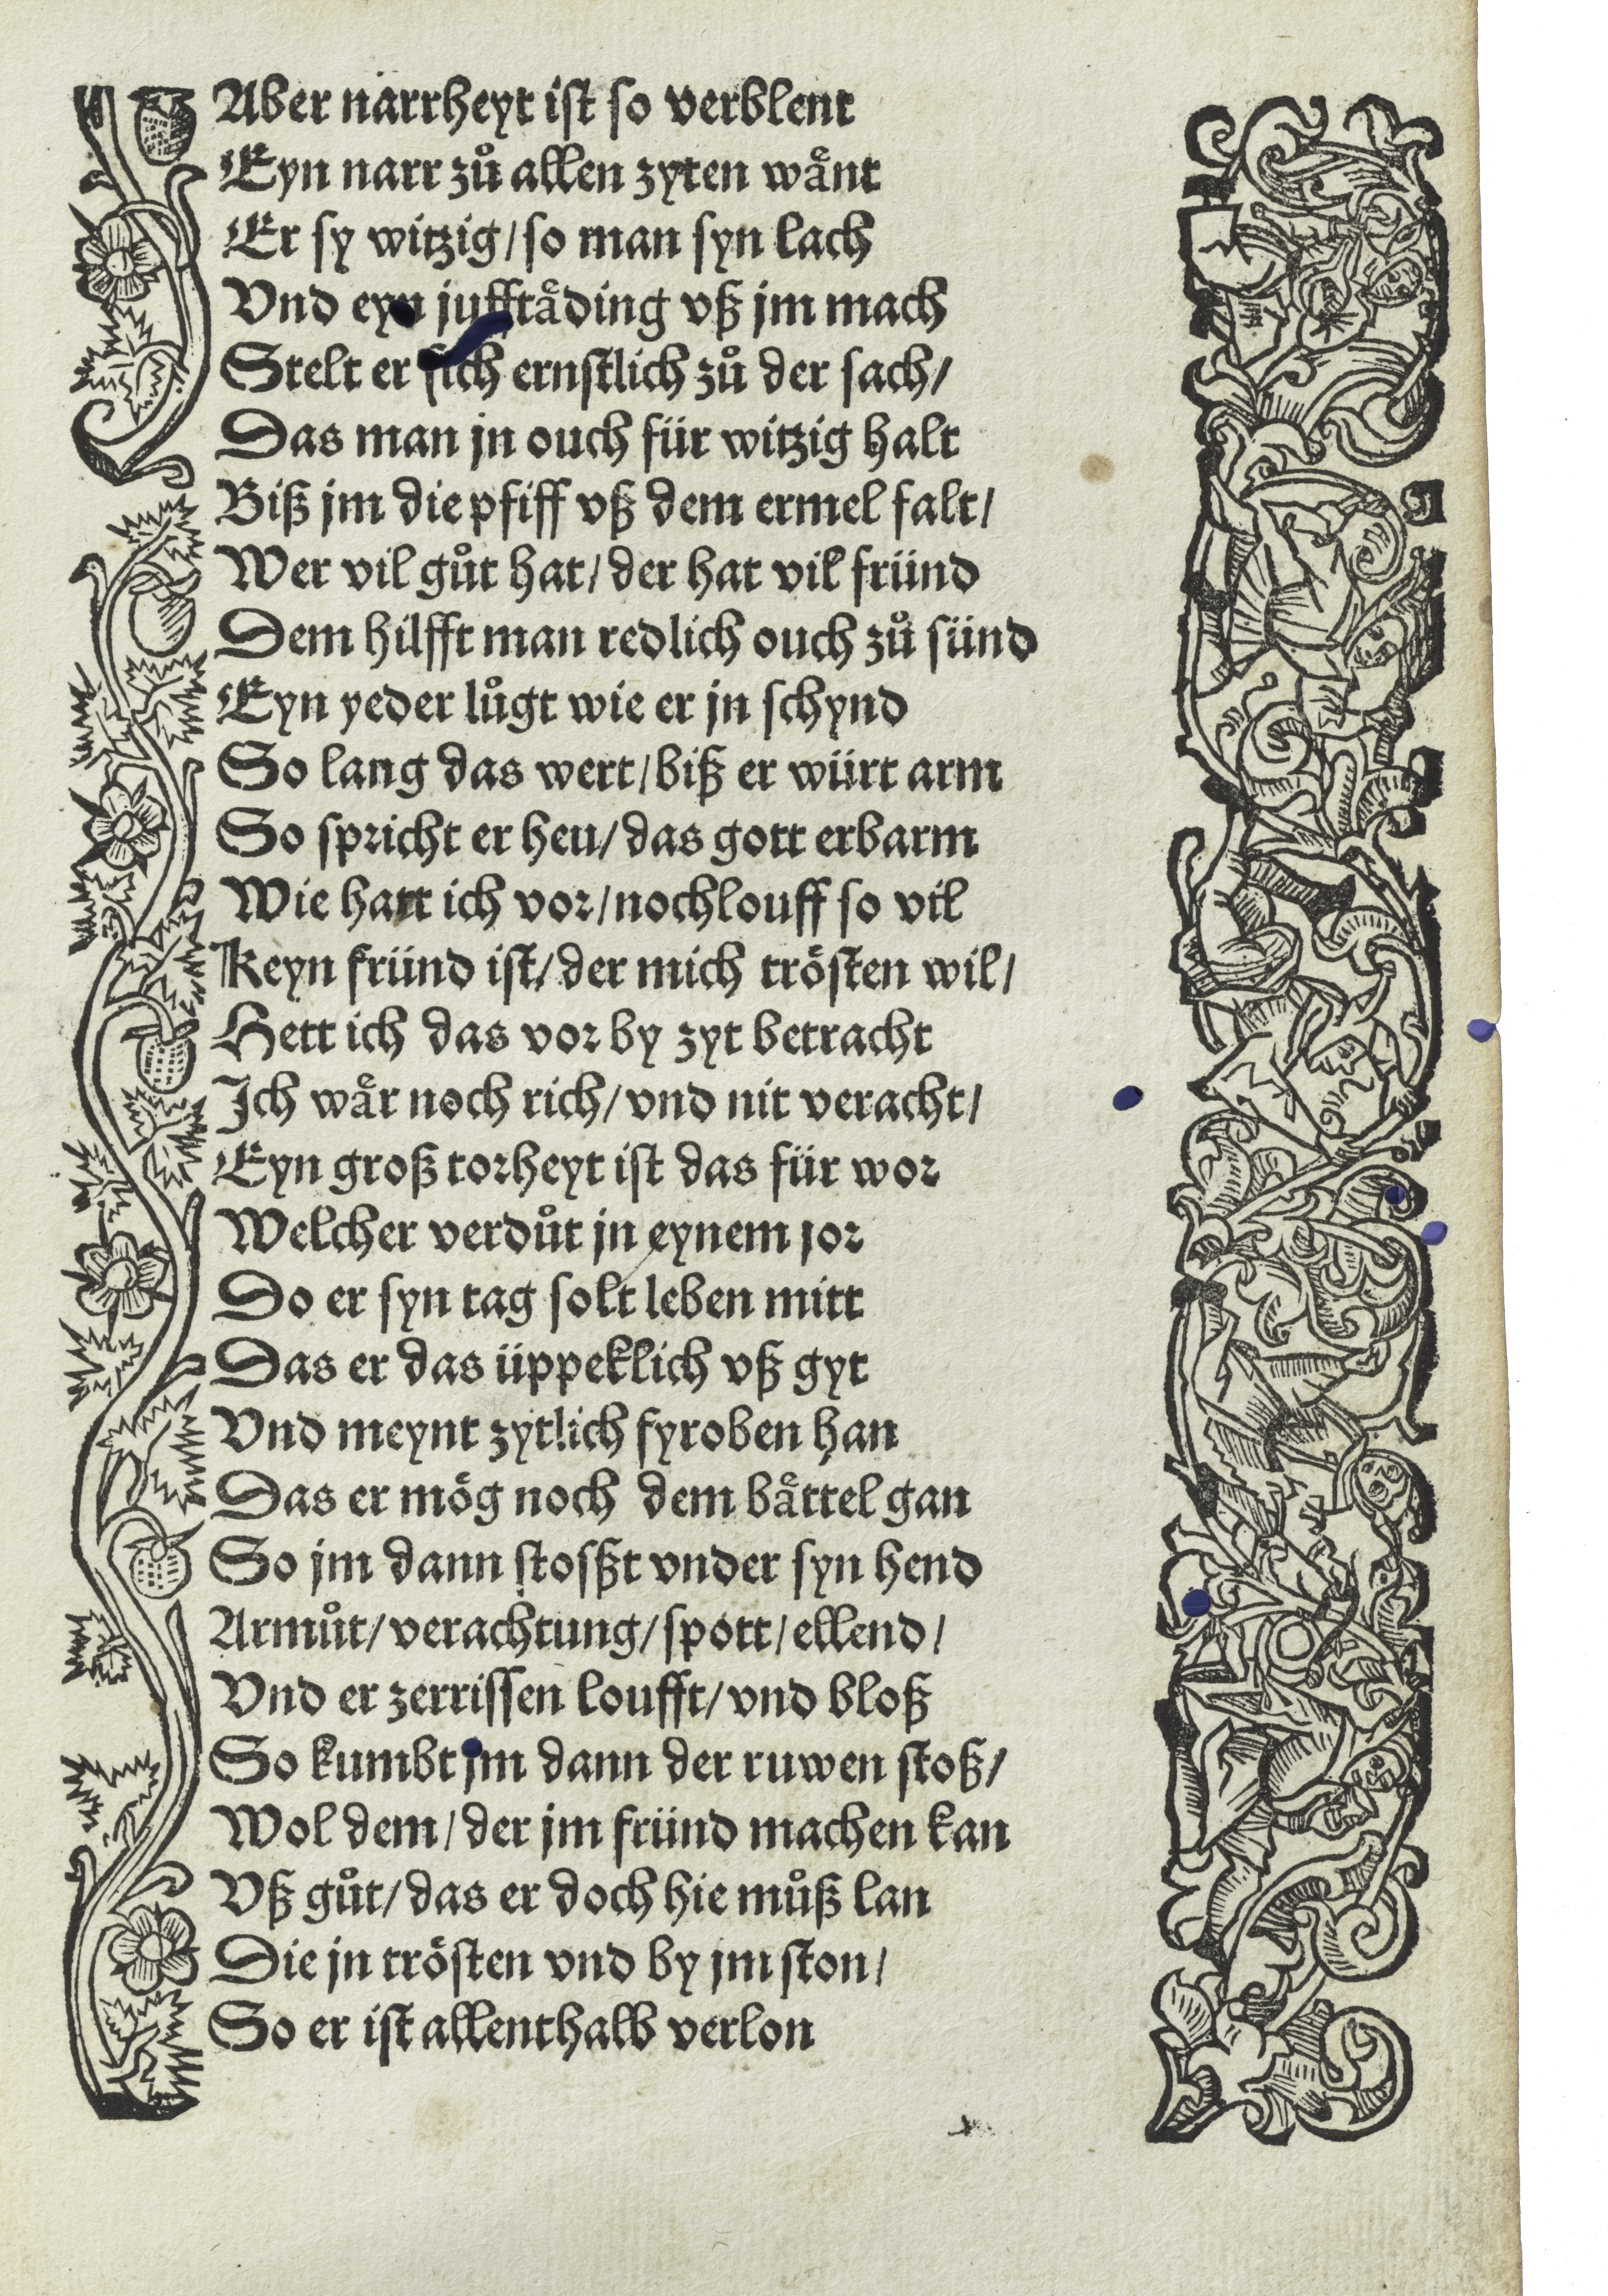 Aber narrheyt ist so verblent
Eyn narr zuͦ allen zyten waͤnt
Er sy witzig/ so man syn lach
Vnd eyn jufftaͤding vß jm mach
Stelt er sich ernstlich zuͦ der sach/
Das man jn ouch für witzig halt
Biß jm die pfiff vß dem ermel falt/
Wer vil guͦt hat/ der hat vil fründ
Dem hilfft man redlich ouch zuͦ sünd
Eyn yeder luͦgt wie er jn schynd
So lang das wert/ biß er würt arm
So spricht er heu/ das gott erbarm
Wie hatt ich vor/ nochlouff so vil
Keyn fründ ist/ der mich troͤsten wil/
Hett ich das vor by zyt betracht
Ich waͤr noch rich/ vnd nit veracht/
Eyn groß torheyt ist das für wor
Welcher verduͦt jn eynem jor
Do er syn tag solt leben mitt
Das er das üppeklich vß gyt
Vnd meynt zytlich fyroben han
Das er moͤg noch dem baͤttel gan
So jm dann stosßt vnder syn hend
Armuͦt/ verachtung/ spott/ ellend/
Vnd er zerrissen loufft/ vnd bloß
So kumbt jm dann der ruwen stoß/
Wol dem/ der jm fründ machen kan
Vß guͦt/ das er doch hie muͦß lan
Die jn troͤsten vnd by jm ston/
So er ist allenthalb verlon